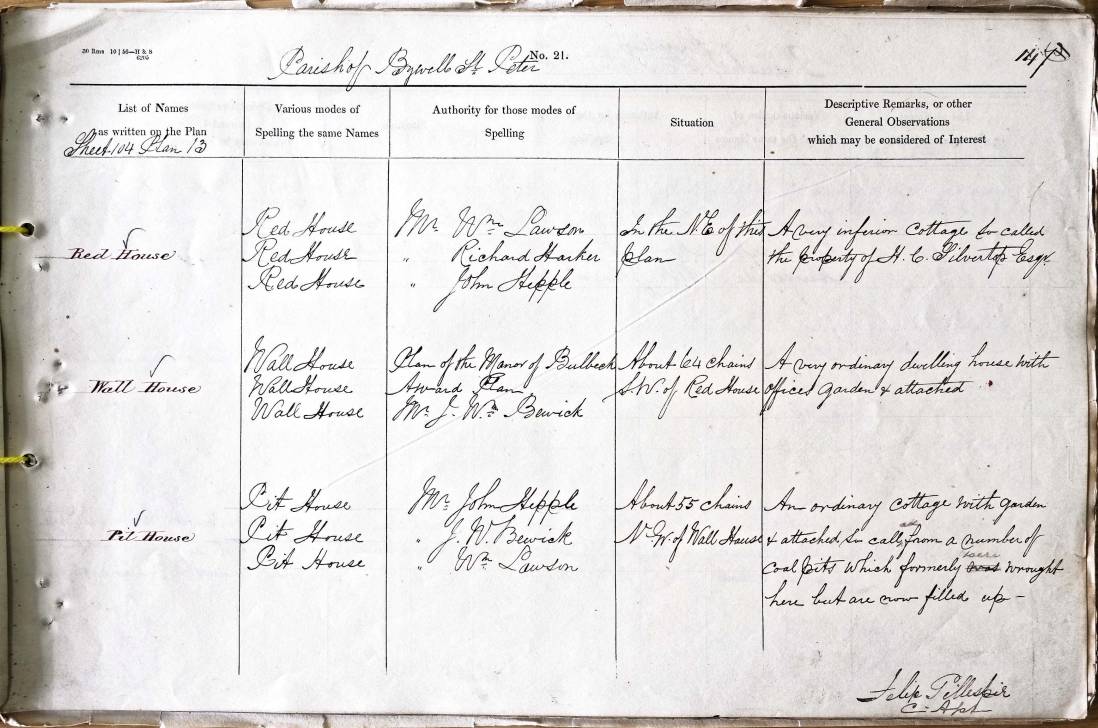 20 Rms 10 | 56—H & S
Parish of Bywell St. Peter No. 21. 147
List of Names
as written on the Plan
Sheet 104 Plan 13
Various modes of
Spelling the same Names
Authority for those modes of
Spelling
Situation
Descriptive Remarks, or other
General Observations
which may be considered of Interest
Red House
Red House
Red House
Red House
Mr. Wm. Lawson
" Richard Harker
" John Hepple
In the N.E. of this
plan
A very inferior cottage so called
the property of H. C. Silvertop Esqr.
Wall House
Wall House
Wall House
Wall House
Plan of the Manor of Bulbeck
Award Plan
Mr. J. Wm. Bewick
About 64 chains
S.W. of Red House
A very ordinary dwelling house with
offices garden & attached
Pit House
Pit House
Pit House
Pit House
Mr. John Hepple
" J. W. Bewick
" Wm. Lawson
About 55 chains
N.W. of Wall House
An ordinary cottage with garden
& attached, so called from a number of
coal pits which formerly was were wrought
here but are now filled up -
Felix Gillespie
C. Asst